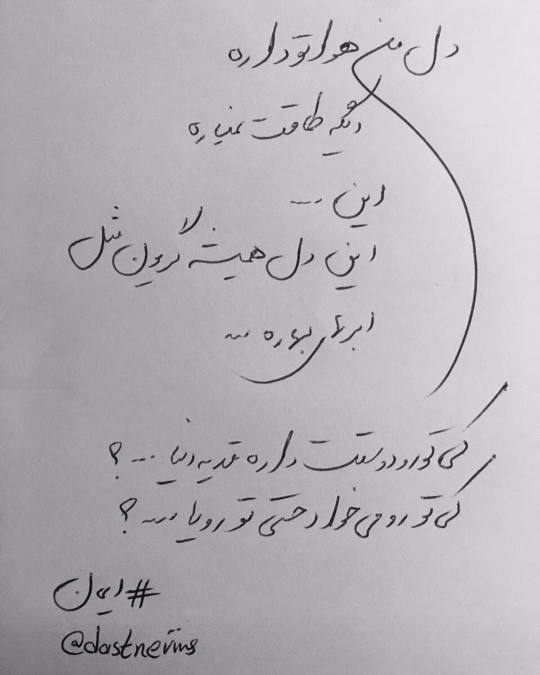 دل من هواتو داره
دیگه طاقت نمیاره
این ....
این دل همیشه گریون مثل
ابرای بهاره ...
کی تورو دوستت داره قد یه دنیا ... ؟
کی تو رو می خواد حتی تو رویا .... ؟
#ایوان
@dastneviis